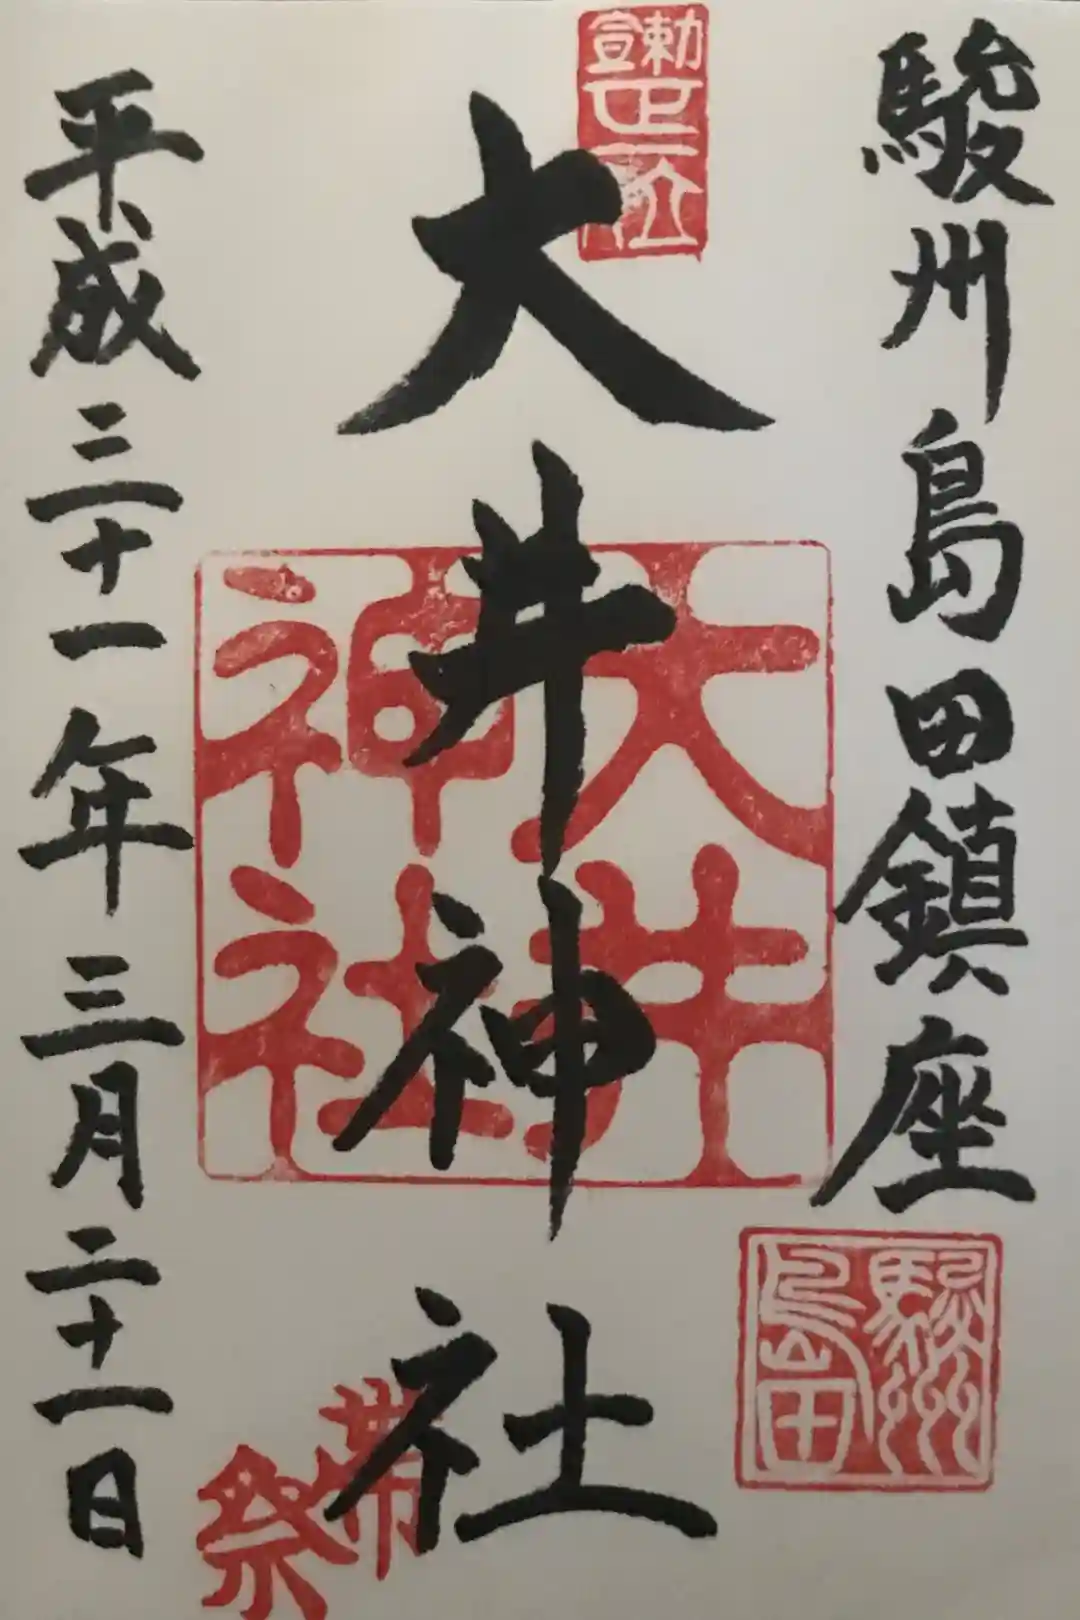 駿州島田鎮座
駿州
島田
勅宣
正一位
大井神社
大井
神社
帯
祭
平成三十一年三月二十一日